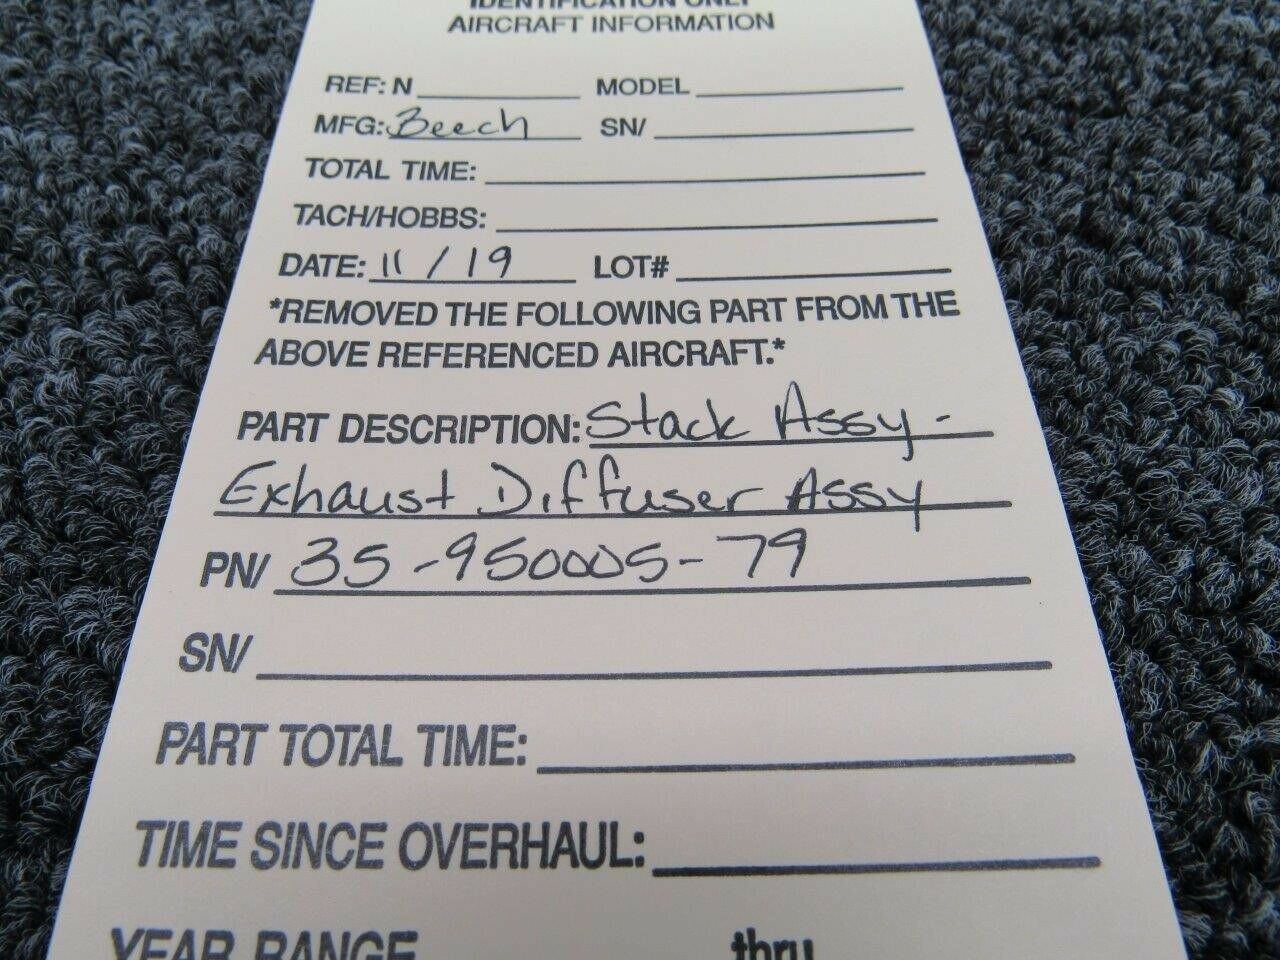 IDENTIFICATION ONLY
AIRCRAFT INFORMATION
REF: N MODEL
MFG: Beech SN/
TOTAL TIME:
TACH/HOBBS:
DATE: 11/19 LOT#
*REMOVED THE FOLLOWING PART FROM THE
ABOVE REFERENCED AIRCRAFT.*
PART DESCRIPTION: Stack Assy -
Exhaust Diffuser Assy
PN/ 35-950005-79
SN/
PART TOTAL TIME:
TIME SINCE OVERHAUL:
YEAR RANGE thru